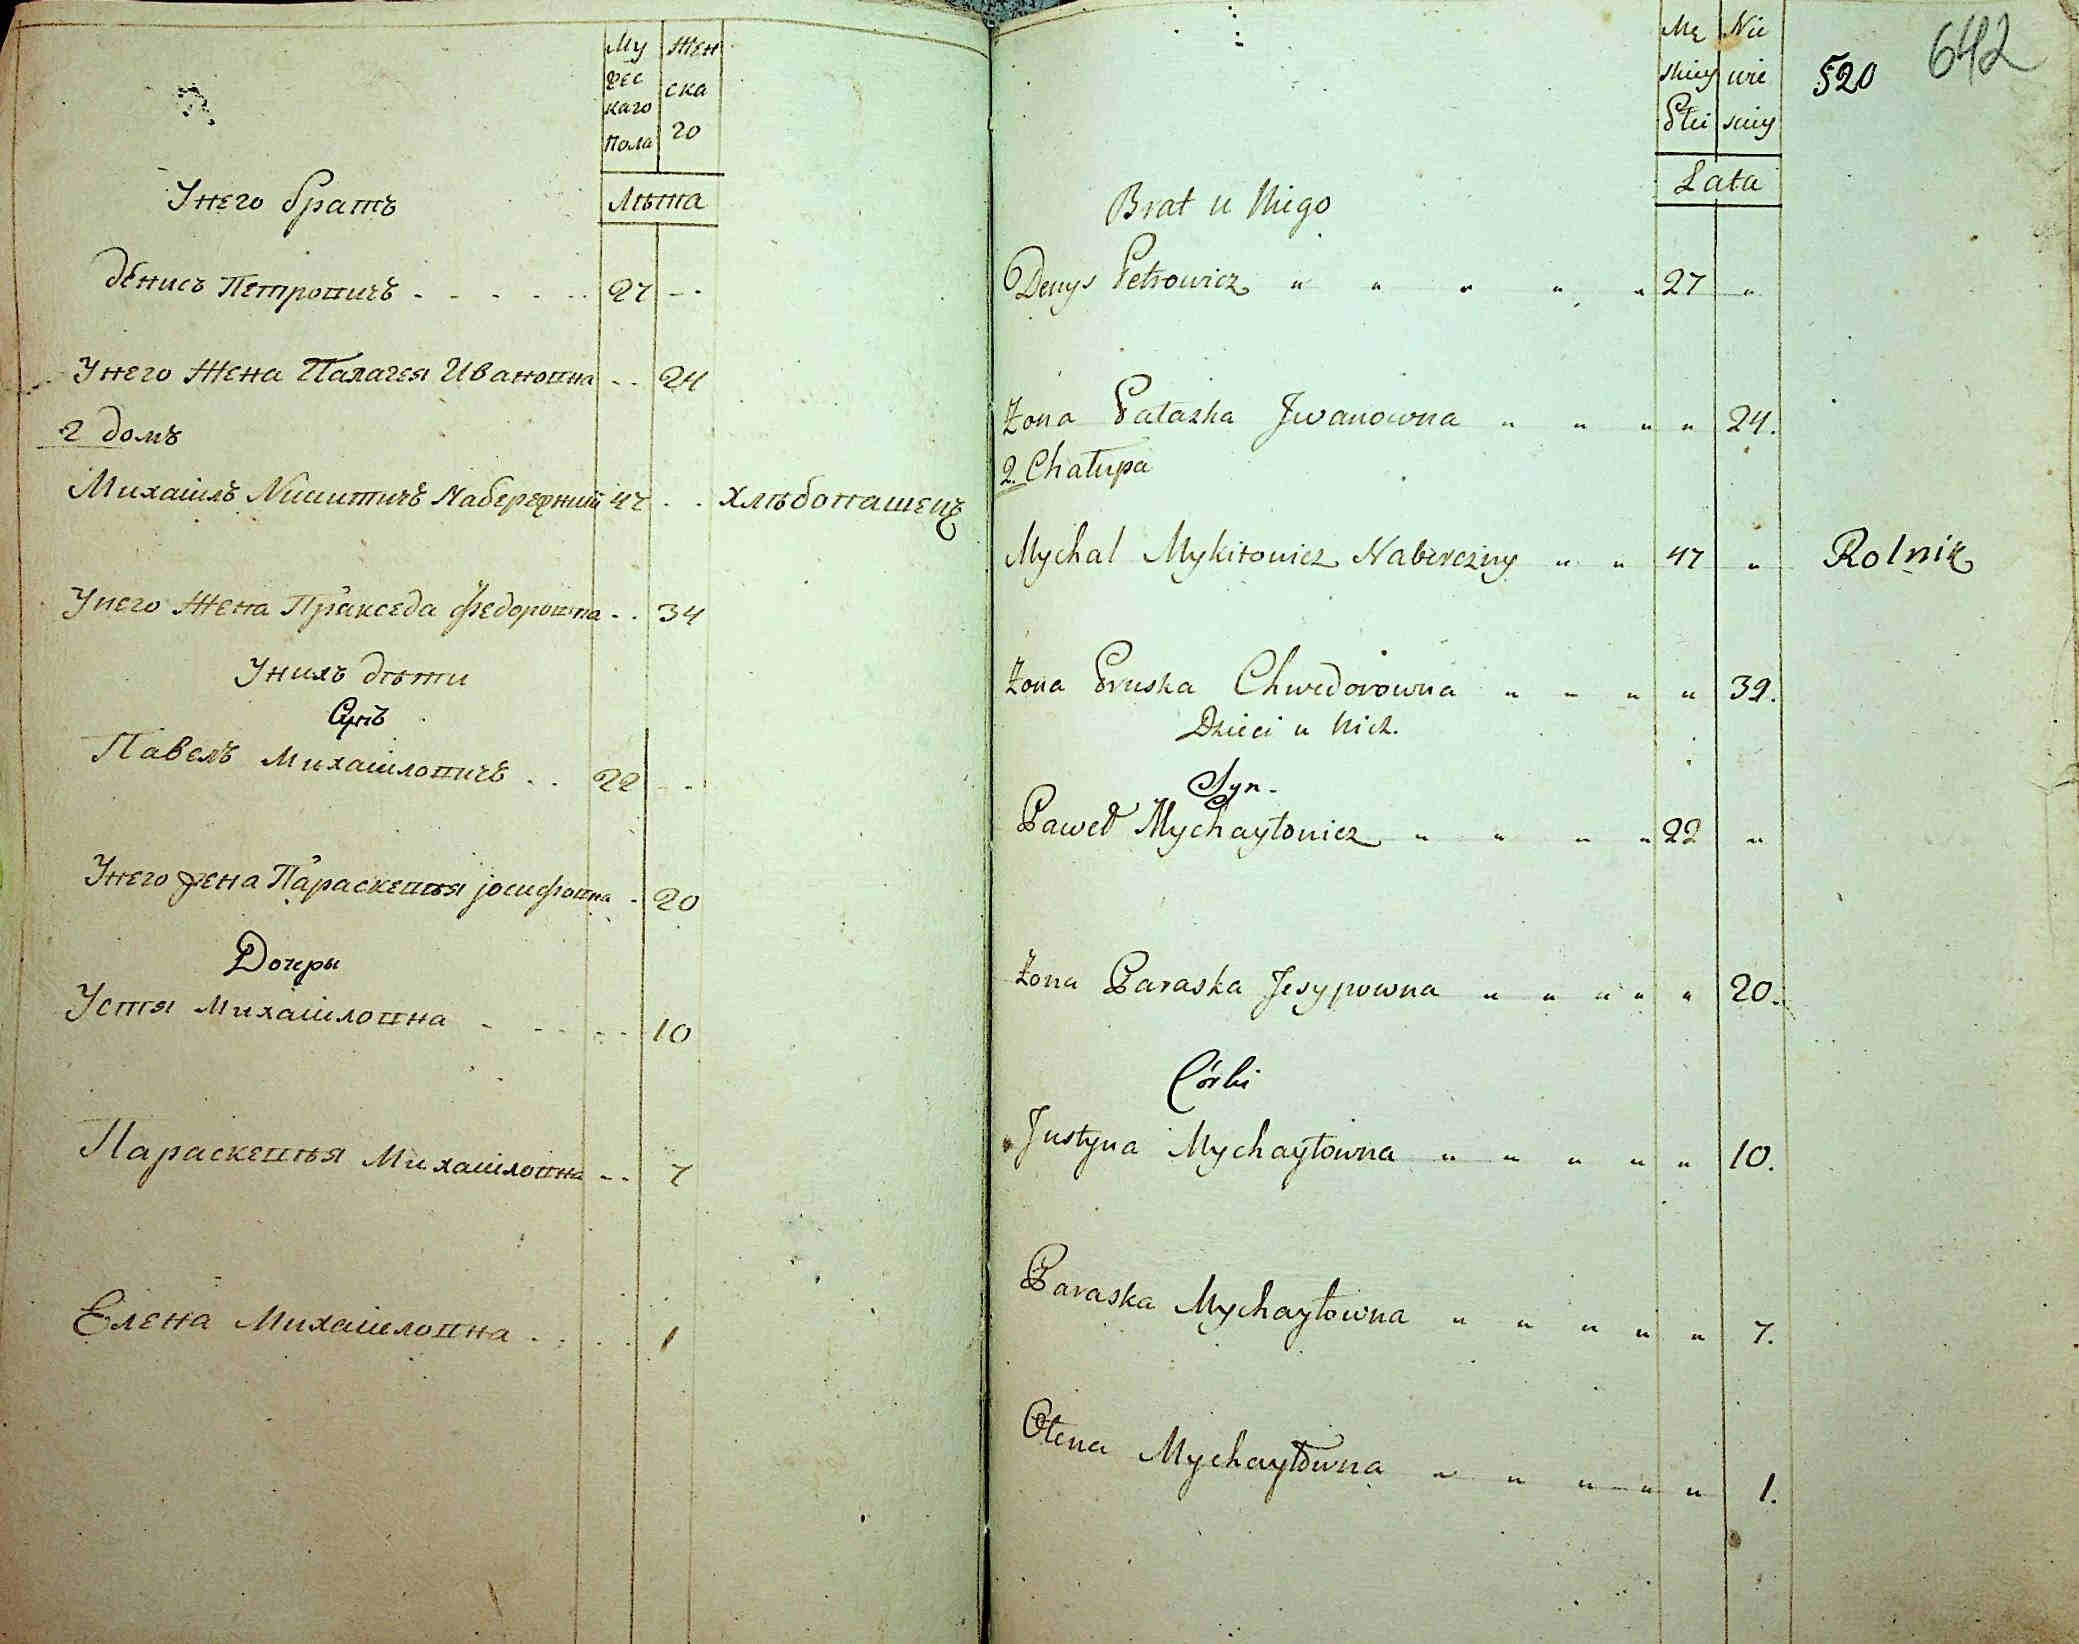 Му жес каго пола
Жен ска го
Лѣта
Унего братъ
Денисъ Петровичъ 27
Унего жена Палагея Ивановна 24
2 домъ
Михаилъ Никитичъ Набережний 47 хлѣбопашецъ
Унего жена Пракседа Федоровна 34
Унихъ дѣти
Сынъ
Павелъ Михаиловичъ 22
Унего жена Параскевія іосифовна 20
Дочеры
Устя Михаиловна 10
Параскевія Михаиловна 7
Елена Михаиловна 1
642
520
Mę skiey Płci
Nie wie sciey
Lata
Brat u Niego
Denys Petrowicz 27
Żona Pałazka Jwanowna 24.
2. Chałupa
Mychal Mykitowicz Naberezny 47 Rolnik
Żona Pruska Chwedorowna 39.
Dzieci u Nich.
Syn.
Paweł Mychayłowicz 22
Żona Paraska Jesypowna 20.
Córki
Justyna Mychayłowna 10.
Paraska Mychayłowna 7.
Ołena Mychayłowna 1.